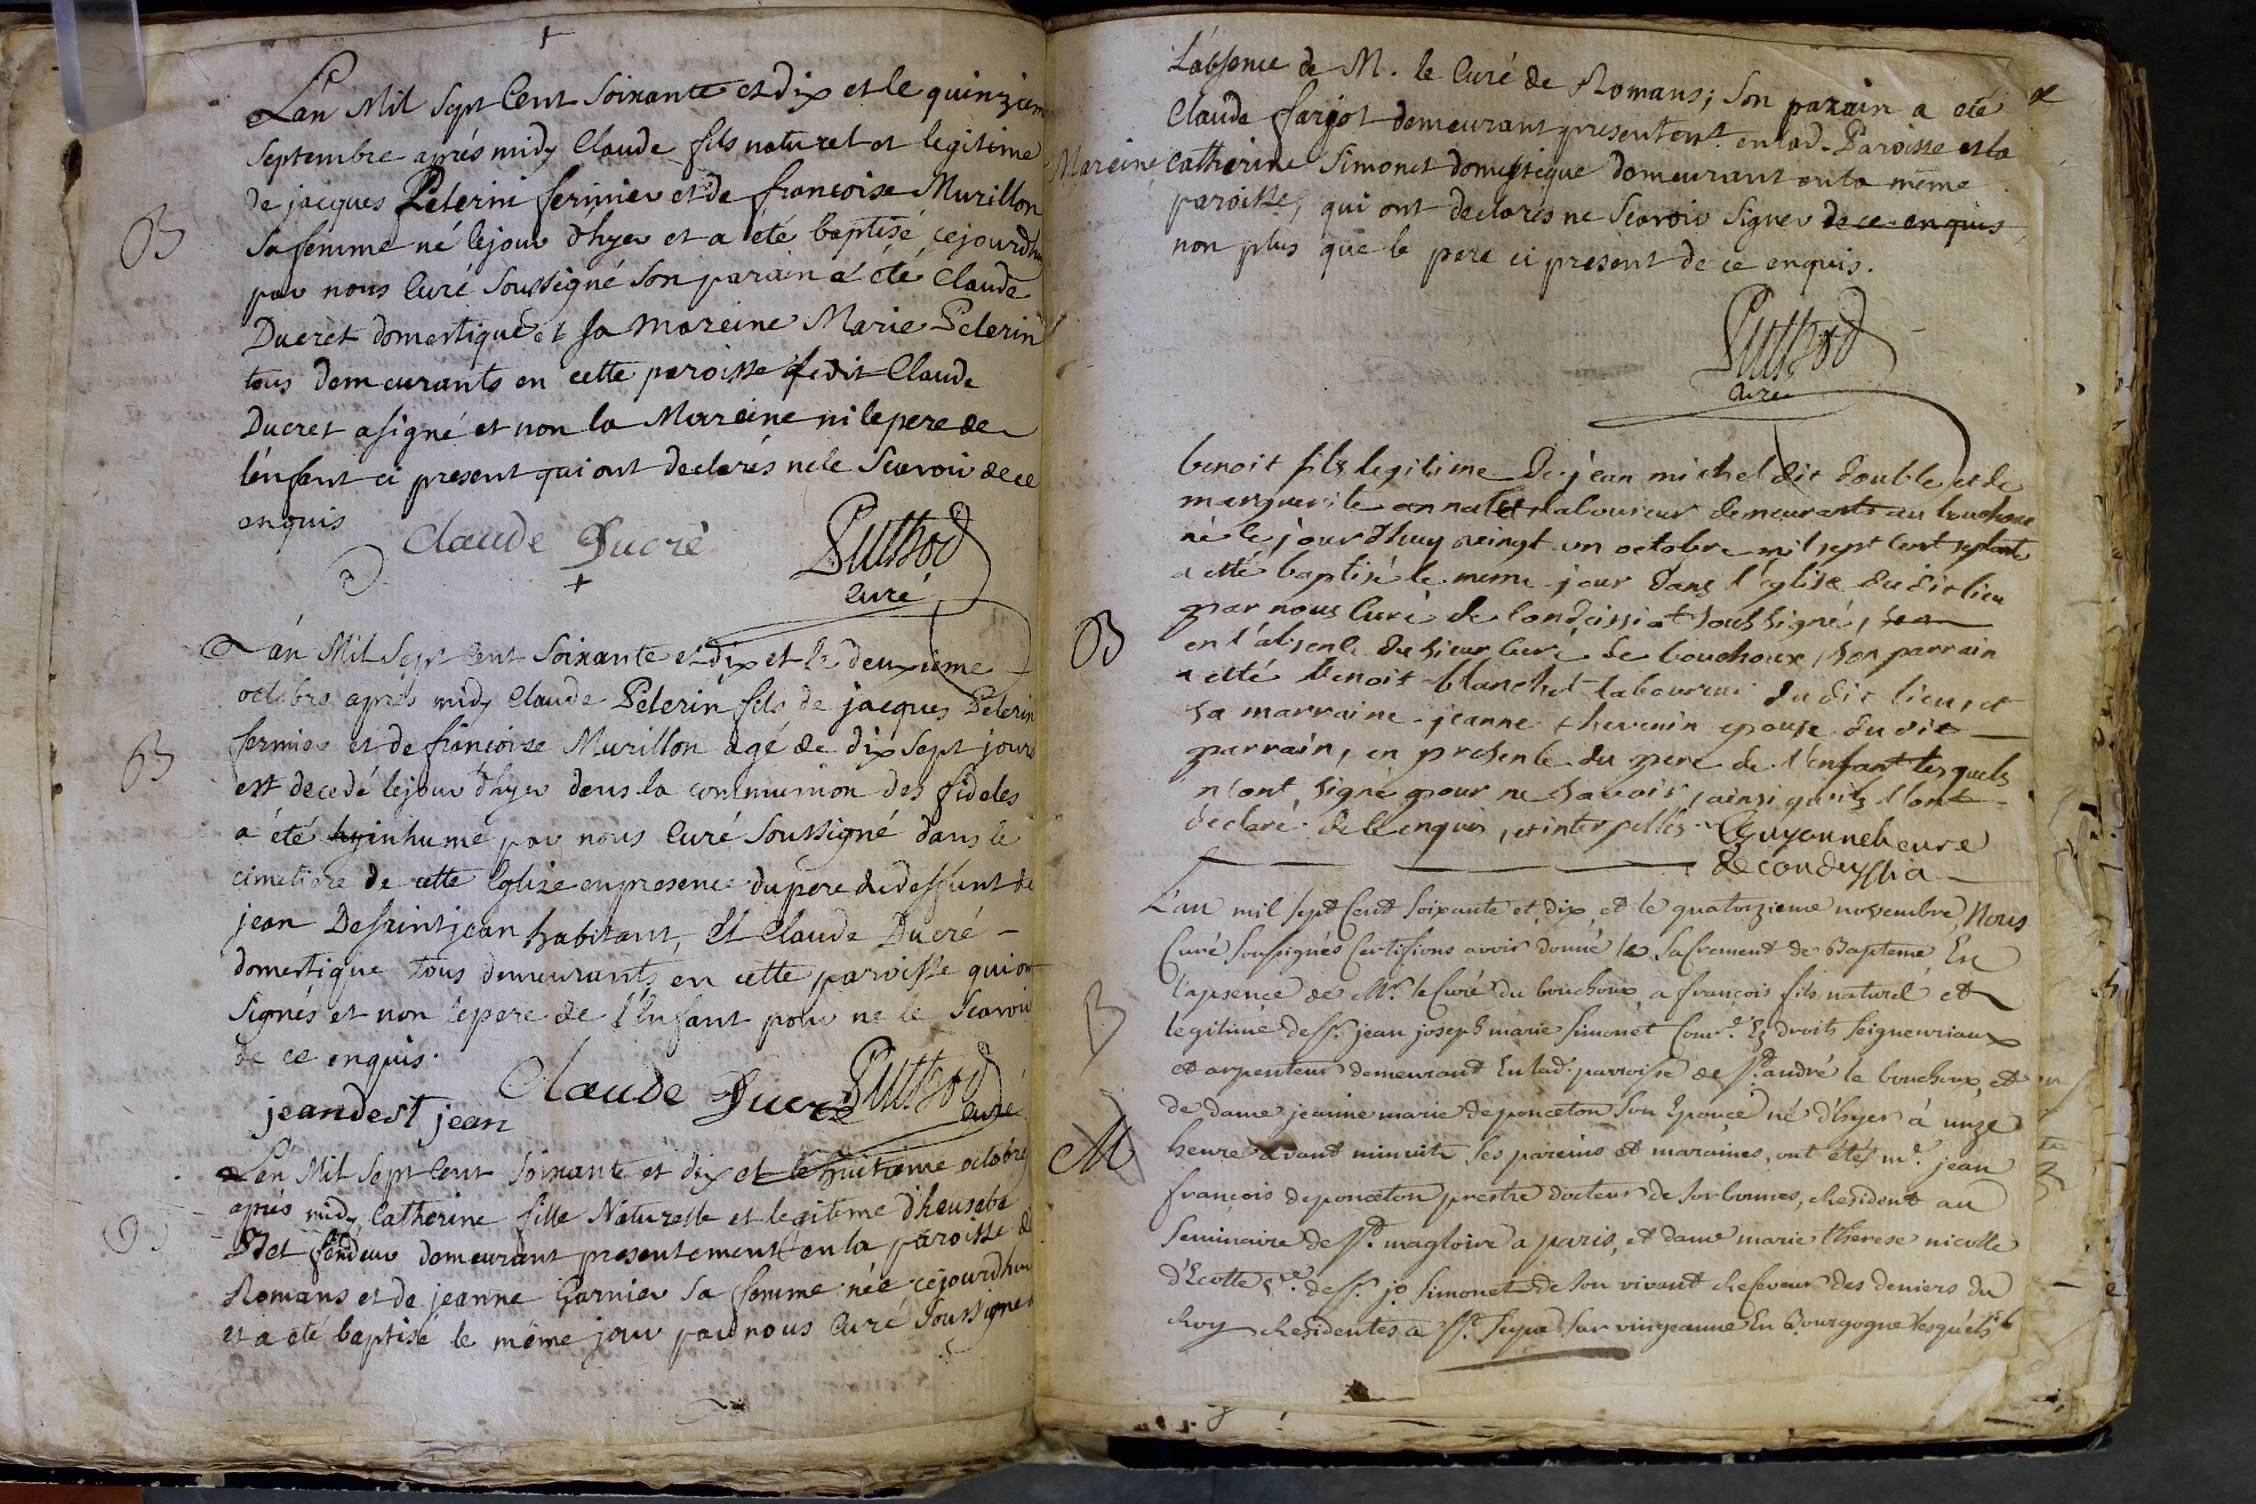 L'an Mil Sept Cent Soixante et dix et le quinziem
Septembre aprés midy Claude fils naturel et legitime
de jacques Pelerin fermier et de francoise Murillon
Sa femme né lejour d'hyer et a été baptisé cejourdhu
par nous Curé Soussigné Son parain a été Claude
Ducret domestique et Sa Mareine Marie Pelerin
tous demeurants en cette paroisse ledit Claude
Ducret asigné et non la Mareine ni lepere de
l'enfant ci present qui ont declarés nele Scavoir de ce
enquis
Claude Ducré
Puthod
Curé
B
L'an Mil Sept Cent Soixante et dix et le deuxième
octobre aprés midy Claude Pelerin fils de jacques Pelerin
fermier et de francoise Murillon agé de dix Sept jours
est decedé lejour d'hyer dans la communion des fideles
a été inhumé par nous Curé Soussigné dans le
cimetiere de cette Eglise en presence dupere du deffunt de
jean Desaintjean habitant, Et Claude Ducré
domestique tous demeurants en cette paroisse qui ont
Signés et non lepere de l'Enfant pour ne le Scavoir
de ce enquis.
Claude Ducré
Puthod
curé
jeandest jean
L'an Mil Sept Cent Soixante et dix et le huitieme octobre
aprés midy Catherine fille Naturelle et legitime d'heusebe
fendeur demeurant presentement en la paroisse de
Romans et de jeanne Garnier Sa femme née cejourdhui
et a été baptisé le même jour par nous Curé Soussigné
L'absence de M. le Curé de Romans; Son parain a eté
Claude farjot demeurant presentemt. en lad. Paroisse et la
Mareine Catherine Simonet domestique demeurant en la même
paroisse, qui ont declarés ne Scavoir Signer de ce enquis
non plus que le pere ci present de ce enquis.
Puthod
Curé
B
benoit fils legitime de jean michel dit double et de
marguerite laboureur demeurants au bouchoux
né le jourd'huy veingt un octobre mil sept cent septante
a etté baptisé le meme jour dans l'église dudit lieu
par nous Curé de Condeissiat soussigné, son
en l'absence du sieur curé de bouchoux, son parrain
a etté benoit blanchet laboureur du dit lieu, et
sa marraine jeanne thevenin epouse du dit
parrain, en presence du pere de l'enfant lesquels
n'ont signé pour ne savoir, ainsi qu'ils l'ont
declaré de ce enquis, et interpellés. Guyonnet cure
de condeyssia
B
L'an mil sept Cent Soixante et dix, et le quatorzieme novembre, Nous
Curé Soussignés Certifions avoir donné le Sacrement de Bapteme En
l'apsence de Mr. le Curé du bouchoux, a françois fils naturel et
legitime de Sr. jean joseph marie Simonet Comre. Es droits Seigneuriaux
et arpenteur demeurant En lad. parroisse de St. andré le bouchoux, et
de dame jeanne marie deponceton Son Epouce né d'hyer à unze
heure avant minuite Ses pareins et maraines, ont étés mr. jean
françois deponceton prestre docteur de Sorbonnes, Resident au
Seminaire de St. magloire a paris, et dame marie therese nicolle
d'Ecotte vve. de Sr. jo Simonet de Son vivant Receveur des deniers du
Roy Residentes a St. Seyne Sur vingeanne En Bourgogne lesquels